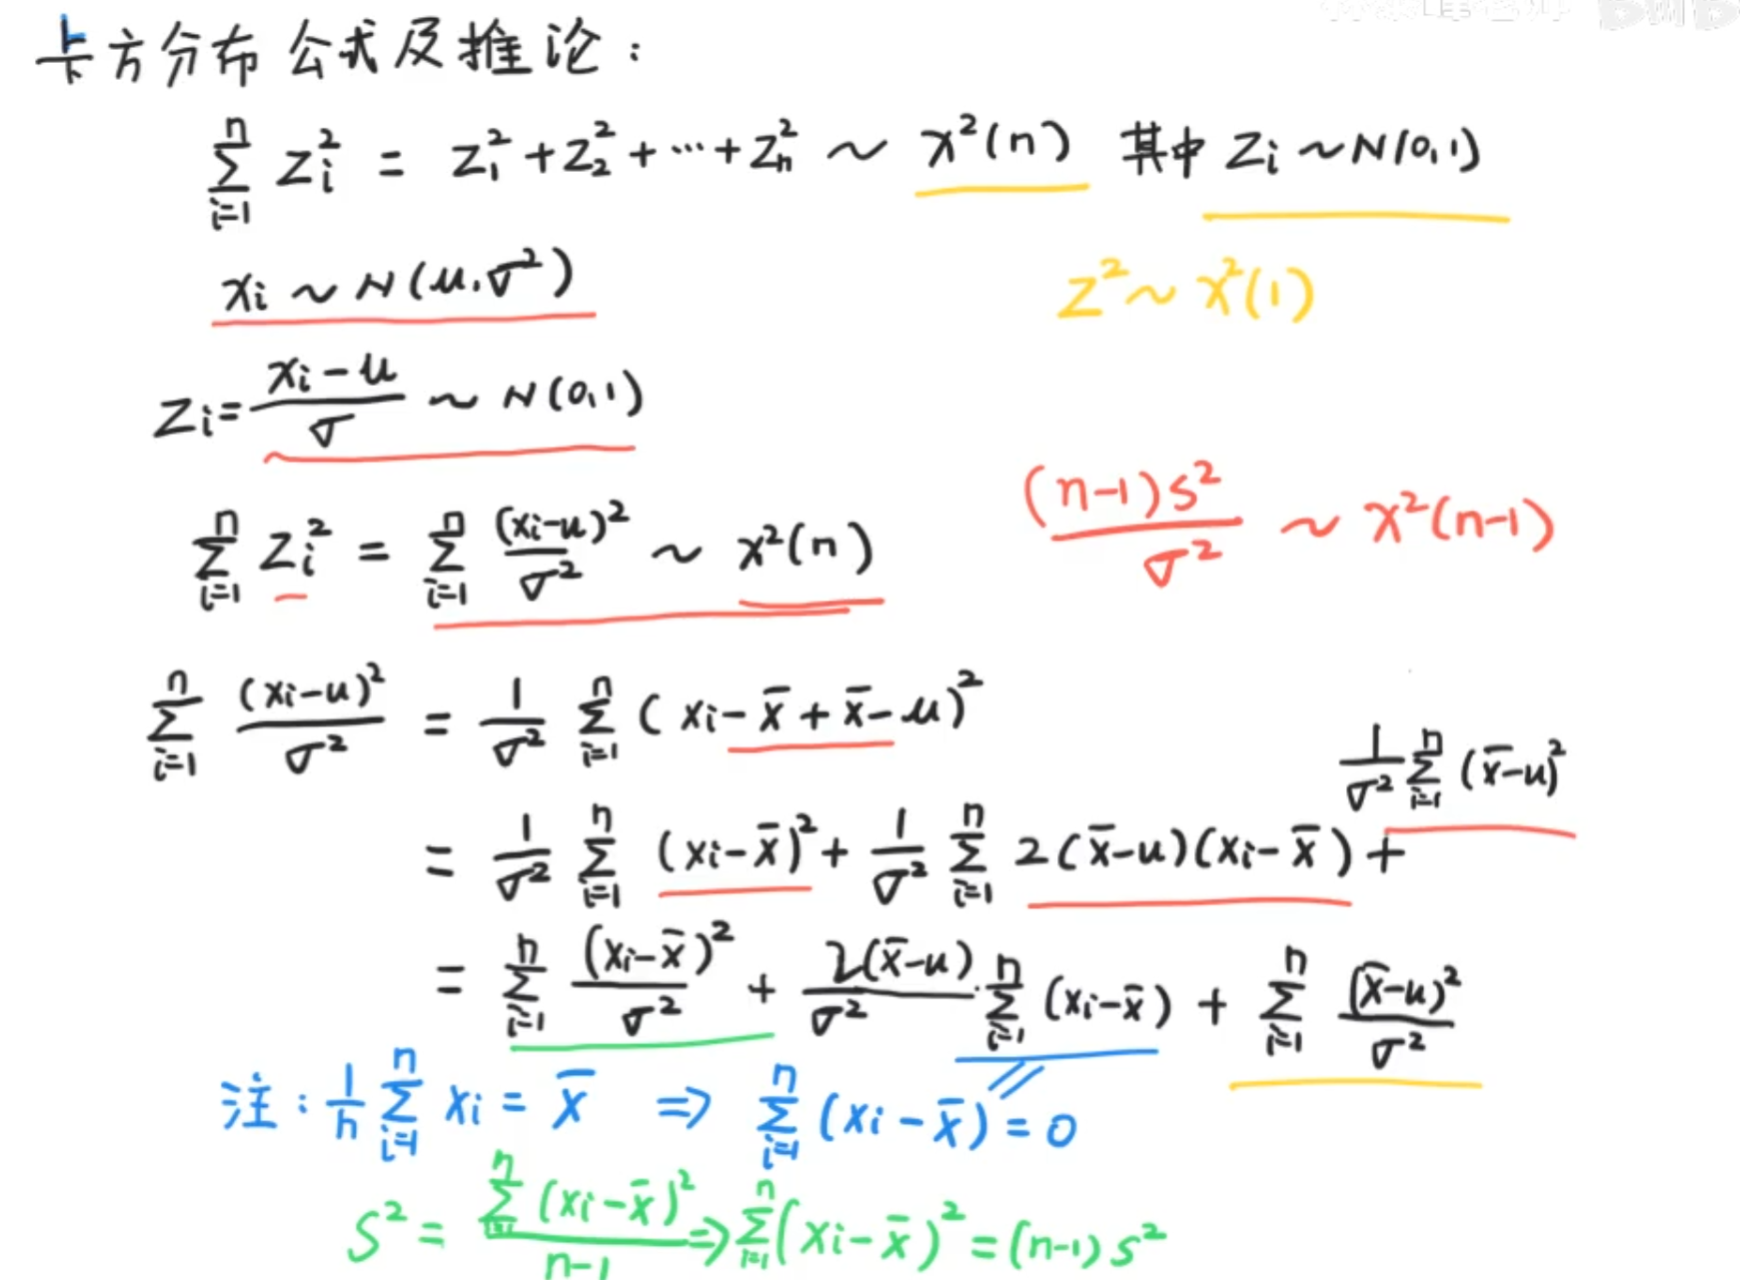 卡方分布公式及推论：
∑_{i=1}^{n} Z_i² = Z_1² + Z_2² + ⋯ + Z_n² ~ χ²(n) 其中 Z_i ~ N(0,1)
x_i ~ N(μ,σ²)
Z² ~ χ²(1)
Z_i = (x_i-μ)/σ ~ N(0,1)
(n-1)S²/σ² ~ χ²(n-1)
∑_{i=1}^{n} Z_i² = ∑_{i=1}^{n} (x_i-μ)²/σ² ~ χ²(n)
∑_{i=1}^{n} (x_i-μ)²/σ² = 1/σ² ∑_{i=1}^{n} (x_i-x̄+x̄-μ)²
= 1/σ² ∑_{i=1}^{n} (x_i-x̄)² + 1/σ² ∑_{i=1}^{n} 2(x̄-μ)(x_i-x̄) + 1/σ² ∑_{i=1}^{n} (x̄-μ)²
= ∑_{i=1}^{n} (x_i-x̄)²/σ² + 2(x̄-μ)/σ² · ∑_{i=1}^{n} (x_i-x̄) + ∑_{i=1}^{n} (x̄-μ)²/σ²
注：1/n ∑_{i=1}^{n} x_i = x̄ ⇒ ∑_{i=1}^{n} (x_i-x̄) = 0
S² = ∑_{i=1}^{n} (x_i-x̄)²/(n-1) ⇒ ∑_{i=1}^{n} (x_i-x̄)² = (n-1)S²